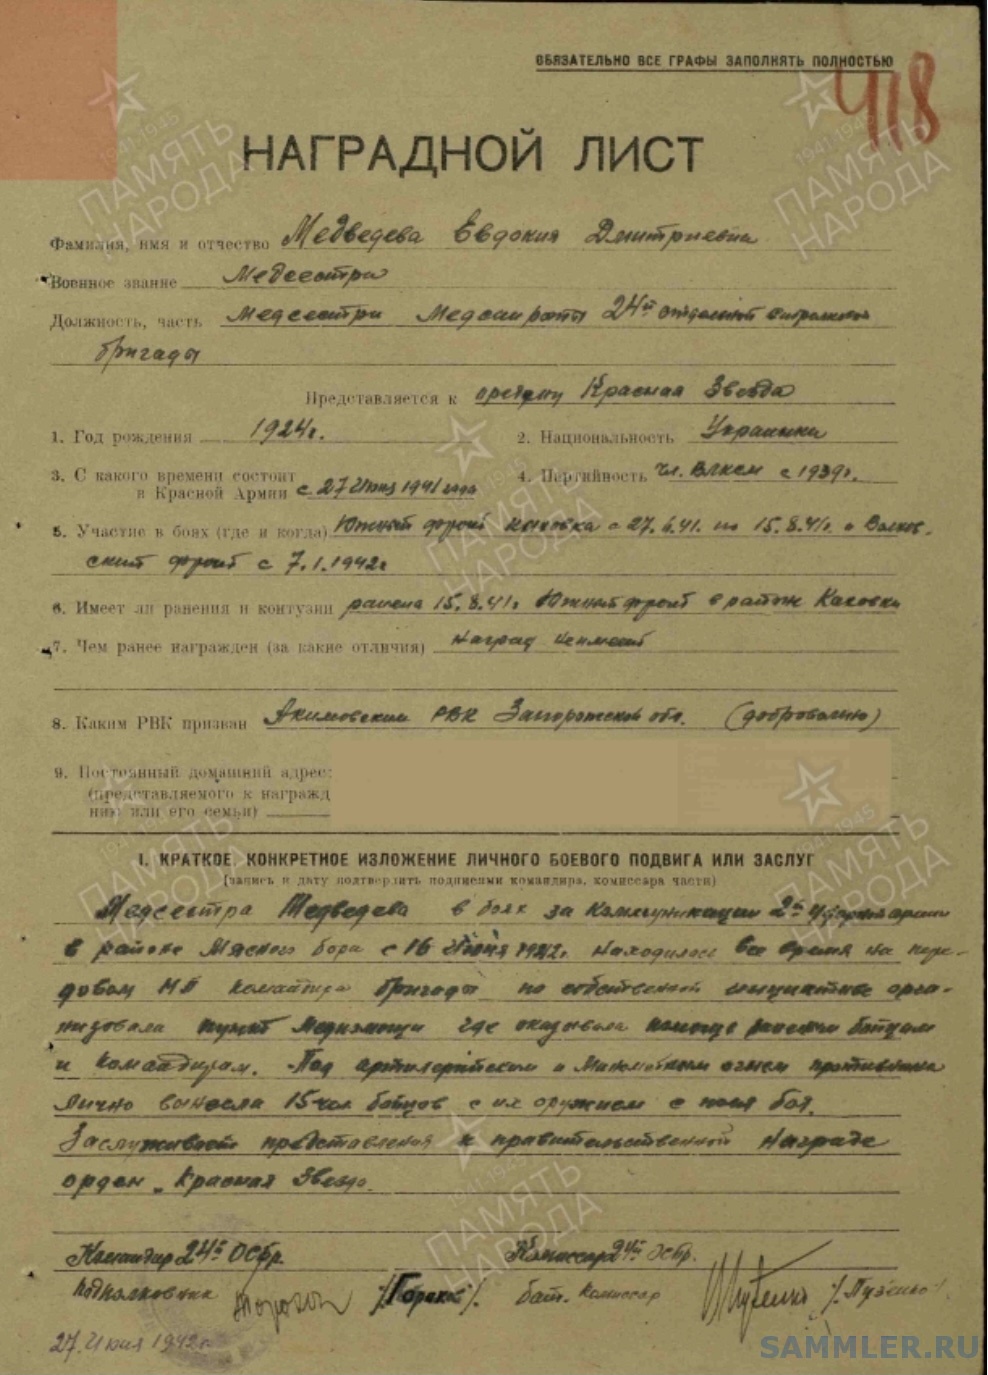 ОБЯЗАТЕЛЬНО ВСЕ ГРАФЫ ЗАПОЛНЯТЬ ПОЛНОСТЬЮ
418
НАГРАДНОЙ ЛИСТ
Фамилия, имя и отчество Медведева Евдокия Дмитриевна
Военное звание Медсестра
Должность, часть Медсестра Медсанроты 24й отдельной стрелковой
бригады
Представляется к ордену Красная Звезда
1. Год рождения 1924г.
2. Национальность Украинка
3. С какого времени состоит
в Красной Армии с 27 1941 года
4. Партийность чл. ВЛКСМ с 1939г.
5. Участие в боях (где и когда) Южный фронт Каховка с 27.6.41. по 15.8.41г. и Волхов-
ский фронт с 7.1.1942г
6. Имеет ли ранения и контузии ранена 15.8.41г Южный фронт в районе Каховки
7. Чем ранее награжден (за какие отличия) Наград не имеет
8. Каким РВК призван Акимовским РВК Запорожской обл. (добровольно)
9. Постоянный домашний адрес:
(представляемого к награжд
нию или его семьи)
I. КРАТКОЕ, КОНКРЕТНОЕ ИЗЛОЖЕНИЕ ЛИЧНОГО БОЕВОГО ПОДВИГА ИЛИ ЗАСЛУГ
(запись и дату подтвердить подписями командира, комиссара части)
Медсестра Медведева в боях за коммуникации 2й Ударной армии
в районе Мясного бора с 16 Июня 1942г. находилась все время на пере-
довом НП командира бригады по собственной инициативе орга-
низовала пункт Медпомощи где оказывала помощь раненым бойцам
и командирам. Под артилерийским и Минометным огнем противника
Лично вынесла 15 чел бойцов с их оружием с поля боя.
Заслуживает представления к правительственной награде
орден „Красная Звезда.
Командир 24й ОСбр.
Комиссар 24й ОСбр.
подполковник
бат. комиссар
/Пузенко/
27 1942г.
ПАМЯТЬ
НАРОДА
1941-1945
ПАМЯТЬ
НАРОДА
1941-1945
ПАМЯТЬ
НАРОДА
1941-1945
ПАМЯТЬ
НАРОДА
1941-1945
ПАМЯТЬ
НАРОДА
1941-1945
ПАМЯТЬ
НАРОДА
1941-1945
SAMMLER.RU